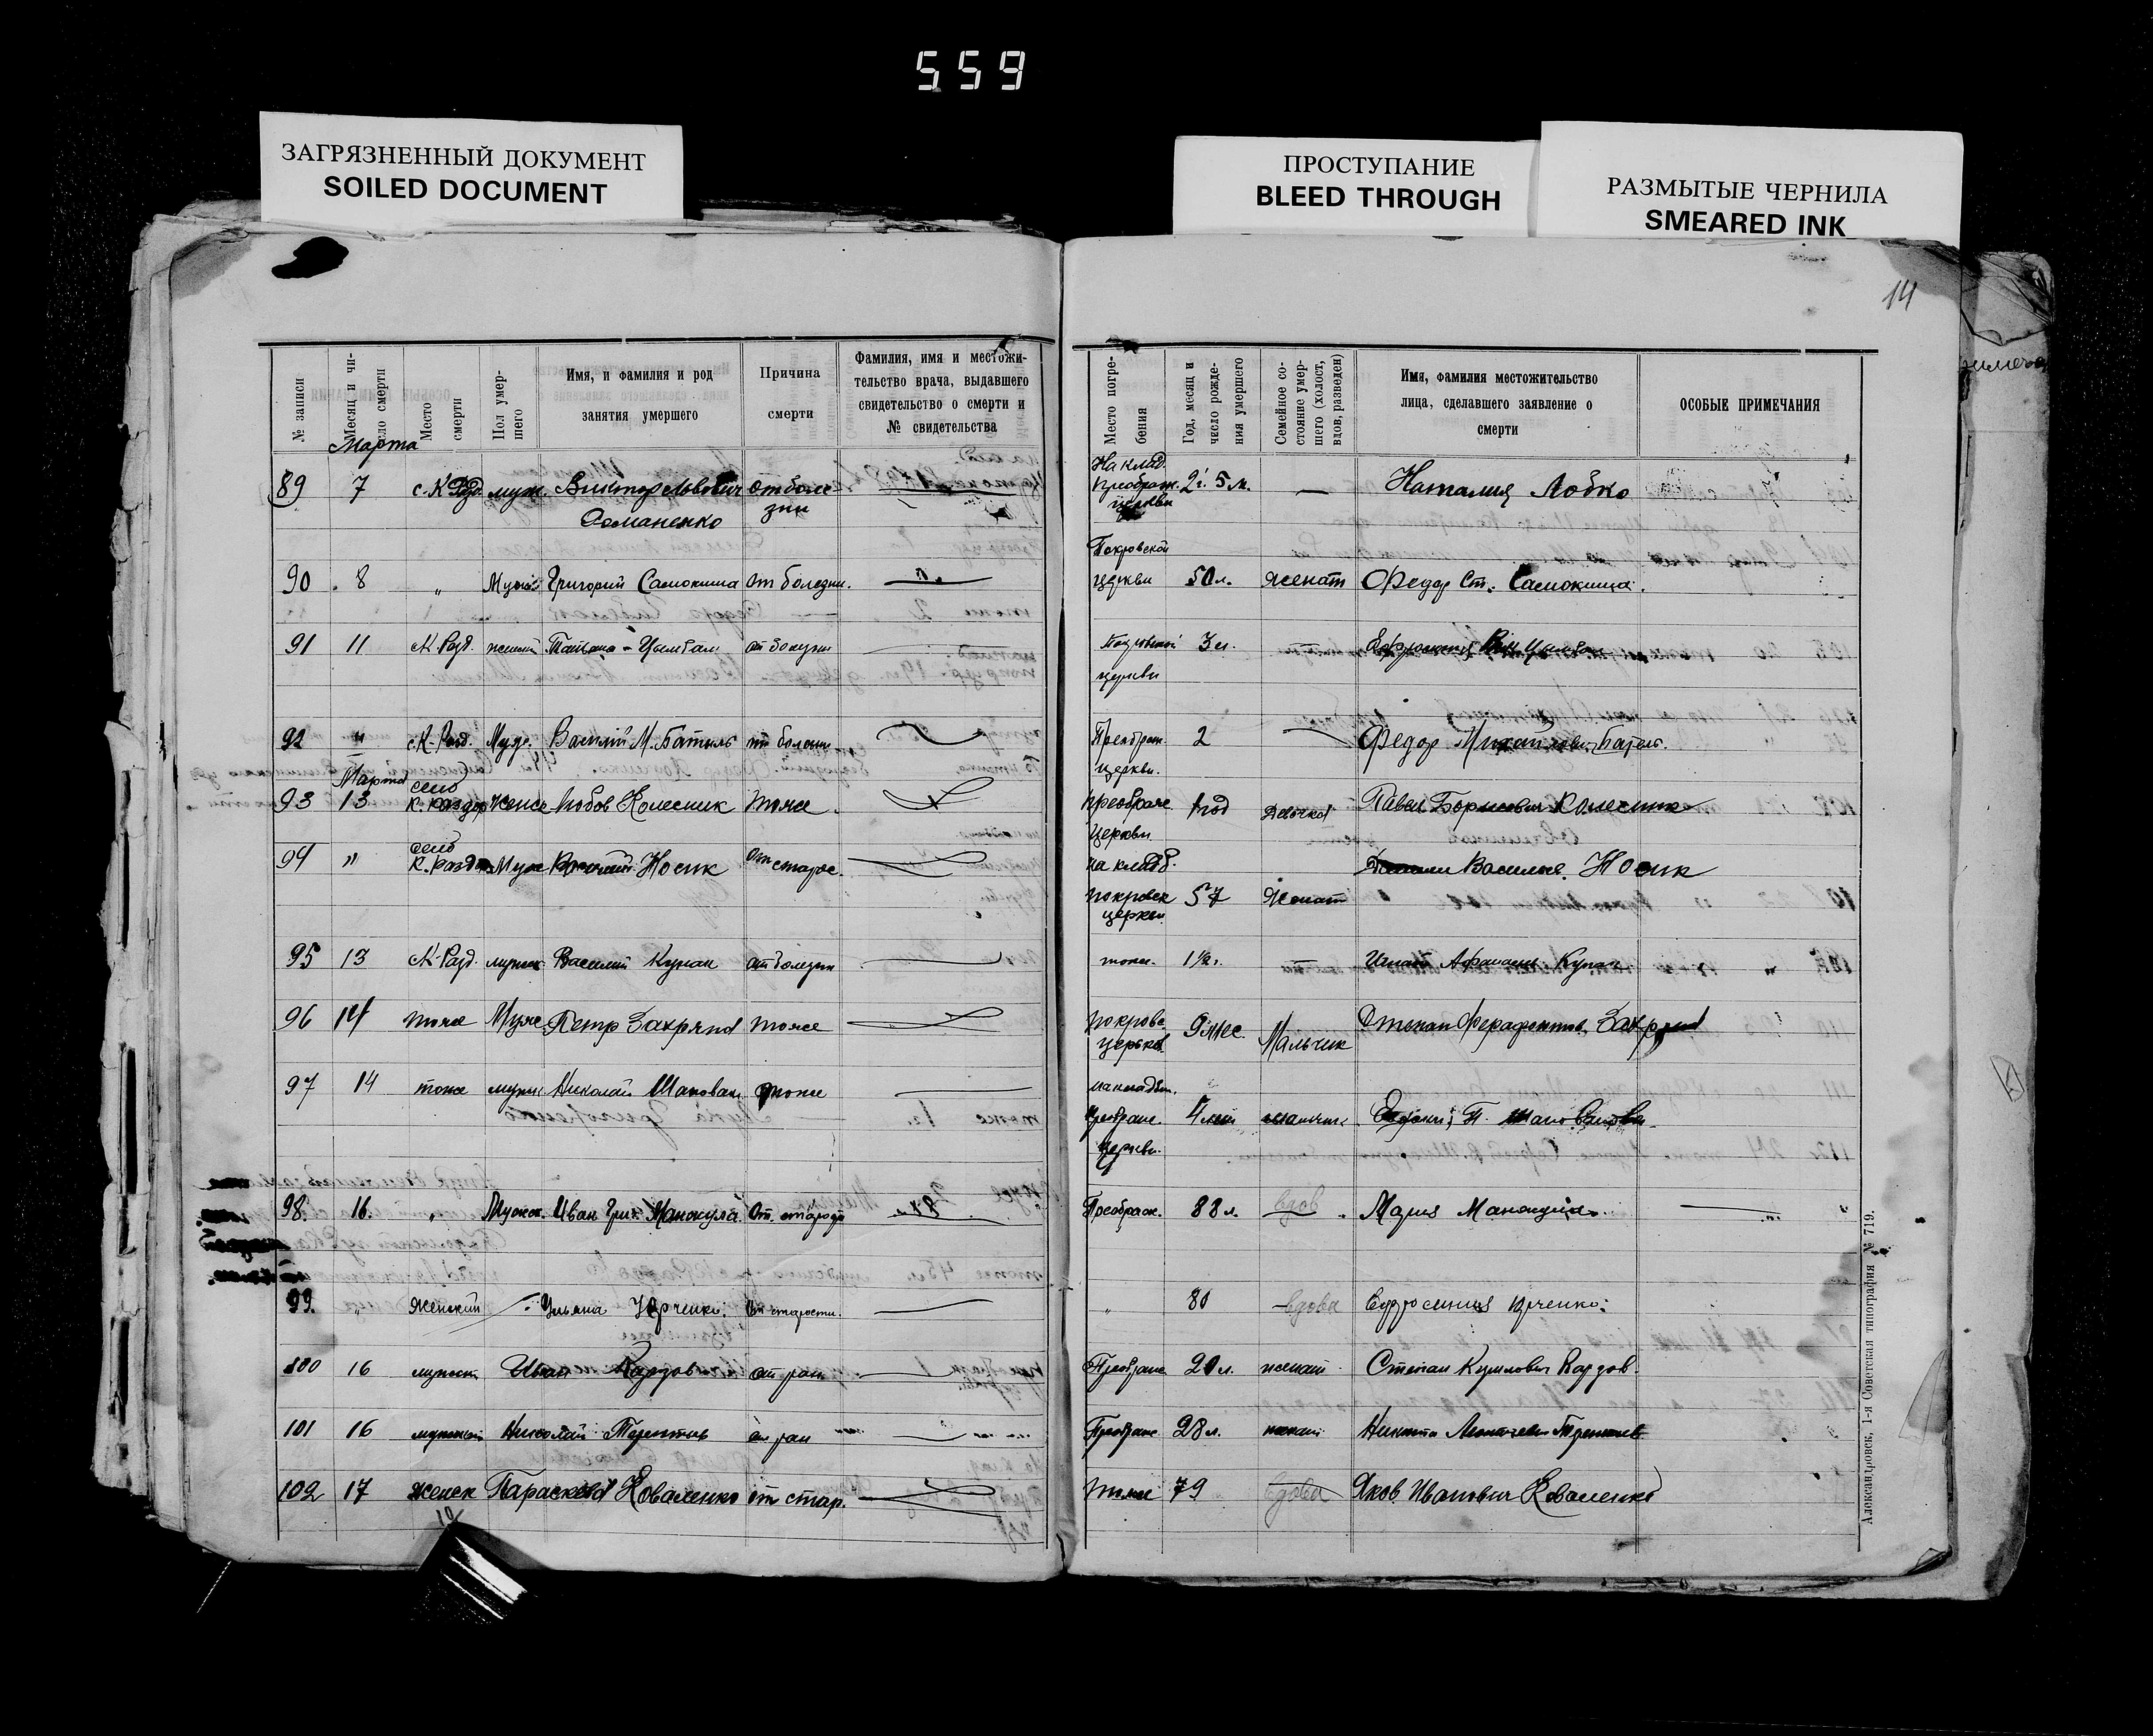 559
ЗАГРЯЗНЕННЫЙ ДОКУМЕНТ
SOILED DOCUMENT
ПРОСТУПАНИЕ
BLEED THROUGH
РАЗМЫТЫЕ ЧЕРНИЛА
SMEARED INK
14
№ записи
Месяц и чи-
сло смерти
Место
смерти
Пол умер-
шего
Имя, и фамилия и род
занятия умершего
Причина
смерти
Фамилия, имя и местожи-
тельство врача, выдавшего
свидетельство о смерти и
№ свидетельства
Место погре-
бения
Год, месяц и
число рожде-
ния умершего
Семейное со-
стояние умер-
шего (холост,
вдов, разведен)
Имя, фамилия местожительство
лица, сделавшего заявление о
смерти
ОСОБЫЕ ПРИМЕЧАНИЯ
Марта
На клад.
89 7 с. К Разд. муж. Виктор Львович от боле- Преображ. 2 г. 5 м. — Наталия Лобко
зни церкви
Романенко
Покровской
90 8 " Мужс. Григорий Самокиша от болезни. церкви 50 л. женат Федор Ст. Самокиша.
91 11 К-Разд. женский Татьяна Цымбал от болезни Покровской 3 м. — Цымбал
церкви
92 11 с. К-Разд. Муж. Василий М. Батыль от болезни Преображ. 2 — Федор Михайлович Батыль.
церкви.
Марта село
93 13 К. Раздор Женс Любов Колесник тоже Преображе 1 год девочка Павел Борисович Колесник
церкви
село
94 " К. Раздо Муж Василий Носик От старос. на кладб. Василий Носик
покровск 57 Женат
церкви
95 13 К-Разд. мужск Василий Купак от болезни тоже. 1½ г. — Игнат Афанасьев Купак
96 14 тоже Муже Петр Захряпа тоже покрове 9 мес. Мальчик Захряпа
церков
97 14 тоже мужск Николай Шаповал тоже на кладби.
Преображе. 4 лет мальчик П. Шаповалова
церкви.
98. 16. " Мужск. Иван Григ. Манжула От старости Преображ. 88 л. вдов Мария Манжула
99. " Женский Ульяна Юрченко От старости. " 80 вдова Ефросиния Юрченко.
100 16 мужск Иван Кардов от ран Преображе 20 л. женат Степан Кирилович Кардов.
101 16 мужской Николай Терентьев от ран Преображе 28 л. женат Никита Терентьев
102 17 женск Параскева Коваленко от стар. тоже 79 вдова Яков Иванович Коваленко
Александровск, 1-я Советская типография № 719.